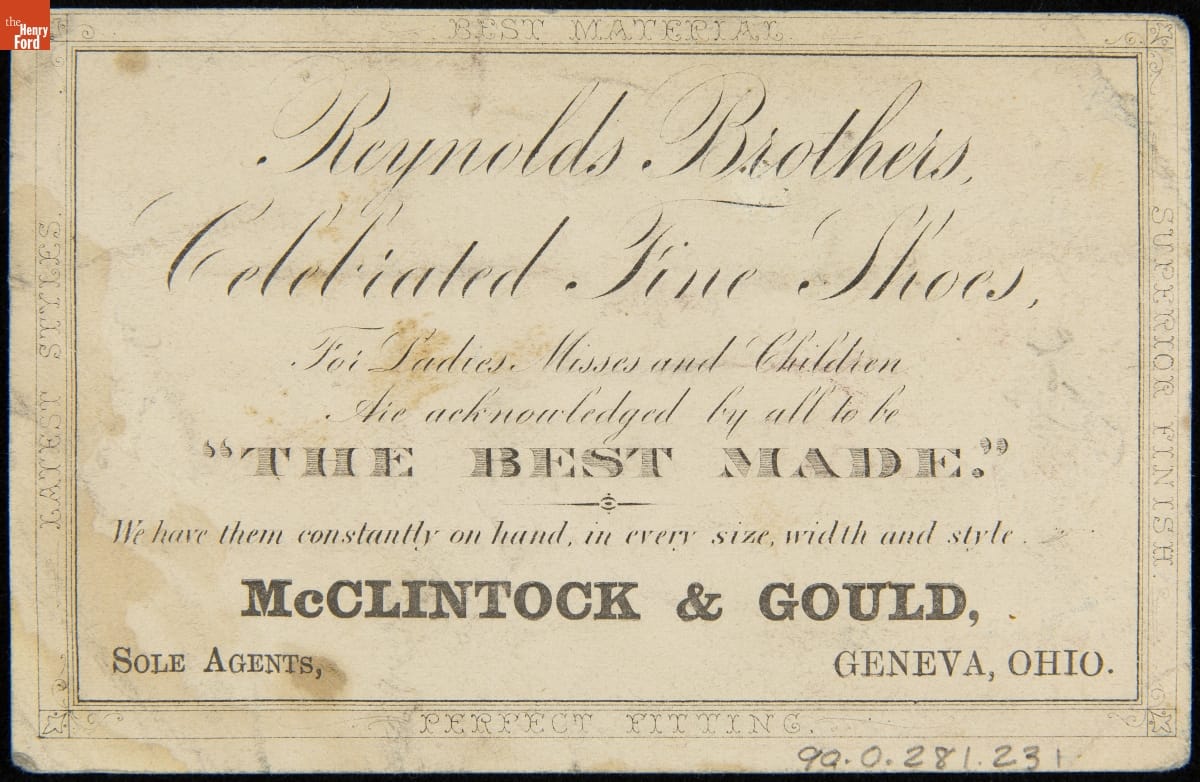 the
Henry
Ford
BEST MATERIAL
Reynolds Brothers,
Celebrated Fine Shoes,
For Ladies, Misses and Children
Are acknowledged by all to be
"THE BEST MADE."
We have them constantly on hand, in every size, width and style.
McCLINTOCK & GOULD,
SOLE AGENTS,
GENEVA, OHIO.
LATEST STYLES.
SUPERIOR FINISH.
PERFECT FITTING.
90.0.281.231